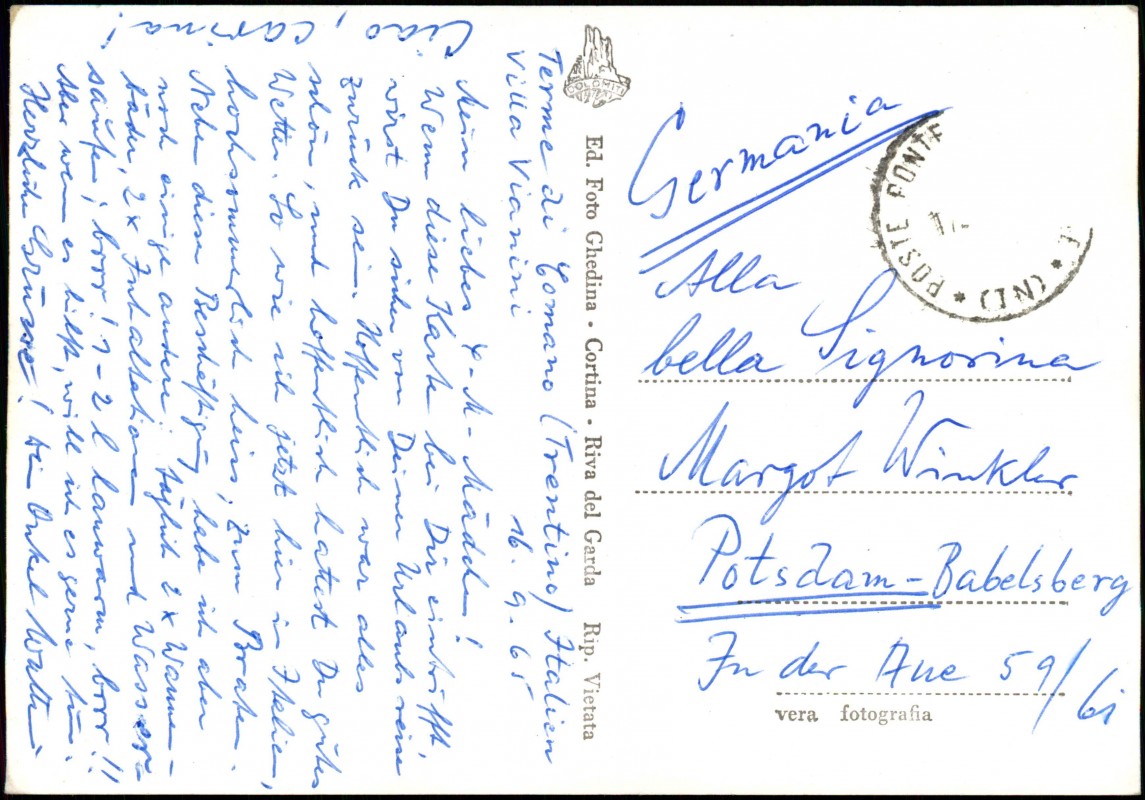 Terme di Comano (Trentino) Italien
Villa Vianini 16. 9. 65
Mein liebes X-M-Mädchen!
Wenn diese Karte bei Dir eintrifft,
wirst Du sicher von Deiner Urlaubsreise
zurück sein. Hoffentlich war alles
schön, und hoffentlich hattest Du gutes
Wetter. So wie ich jetzt hier in Italien,
hochsommerlich heiss, zum Braten.
Neben dieser Beschäftigung habe ich aber
noch einige andere: täglich 2 x Wannen-
bäder, 2 x Inhaltationen und Wasser
saufen, brrr! 1-2 l lauwarm, brrr!!
Aber wenn es hilft, will ich es gerne tun.
Herzliche Grüsse! Dein Onkel Walter
Ciao, carina!
DOLOMITI
Ed. Foto Ghedina • Cortina • Riva del Garda Rip. Vietata
Germania
POSTE PONTE
* (TN) *
Alla
bella Signorina
Margot Winkler
Potsdam-Babelsberg
In der Aue 59/61
vera fotografia